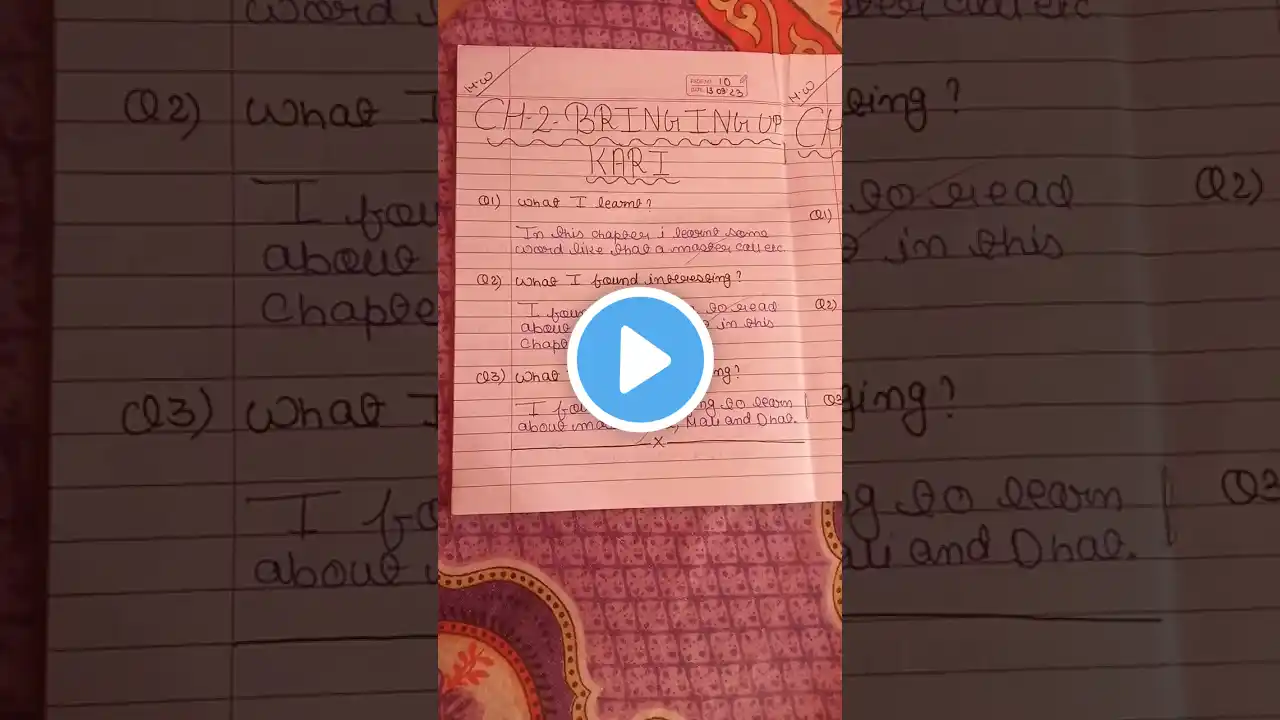 H.W
PAGE NO 10
DATE 13 03 23
CH-2-BRINGING UP
KARI
Q1) What I learnt?
In this chapter i learnt some
word like that a master call etc.
Q2) What I found interessing?
I to read
about in this
Q3) What
I to learn
about Mali and Dhat.
X
H.W
Q1)
Q2)
Q2) What I
I
about
Q3) What I
I
about
to read
in this
to learn
and Dhat.
Q2)